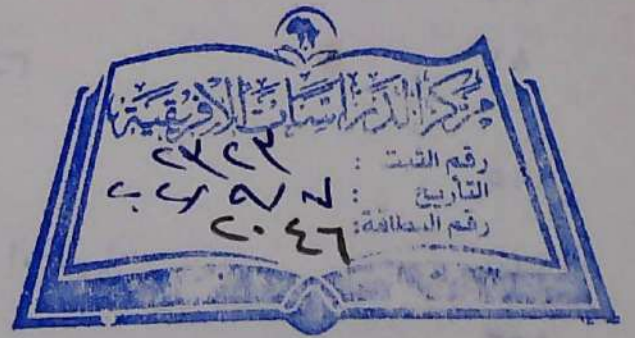 مركز الدراسات الأفريقية
رقم الثبت :
التأريخ :
رقم البطاقة: ٢٠٤٦